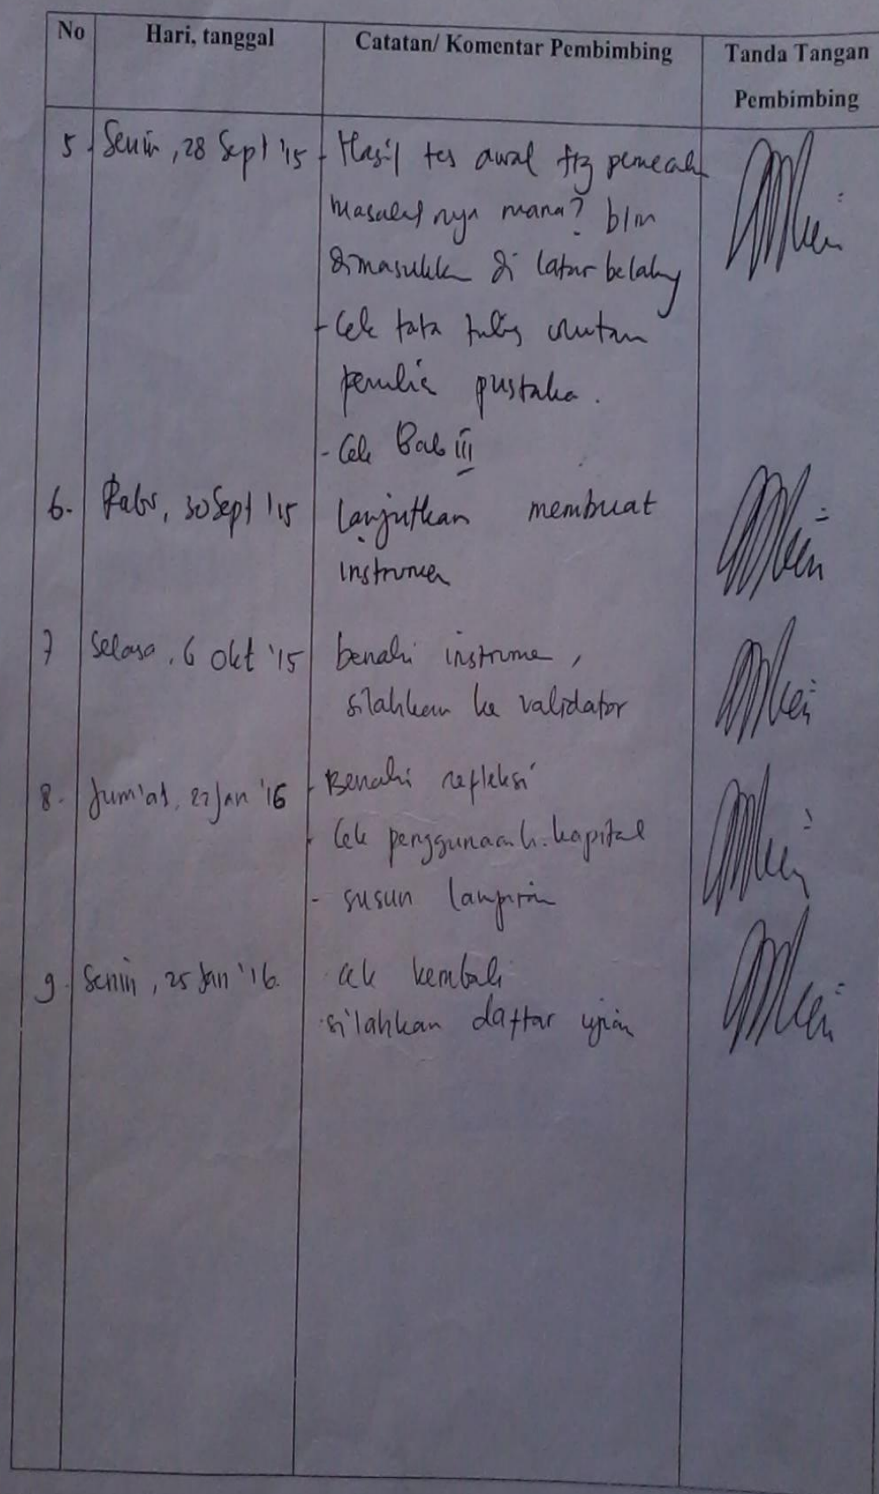 No Hari, tanggal Catatan/ Komentar Pembimbing Tanda Tangan
Pembimbing
5. Senin, 28 Sept '15 - Hasil tes awal ttg pemecah
masalah nya mana? blm
dimasukk di latar belakg
- Cek tata tulis urutan
penulis pustaka.
- Cek Bab III
6. Rabu, 30 Sept '15 lanjutkan membuat
instrumen
7 Selasa, 6 Okt '15 benahi instrume,
silahkan ke validator
8. Jum'at, 22 Jan '16 - Benahi refleksi
- Cek penggunaan h. kapital
- susun lampiran
9. Senin, 25 Jan '16. cek kembali
silahkan daftar ujian